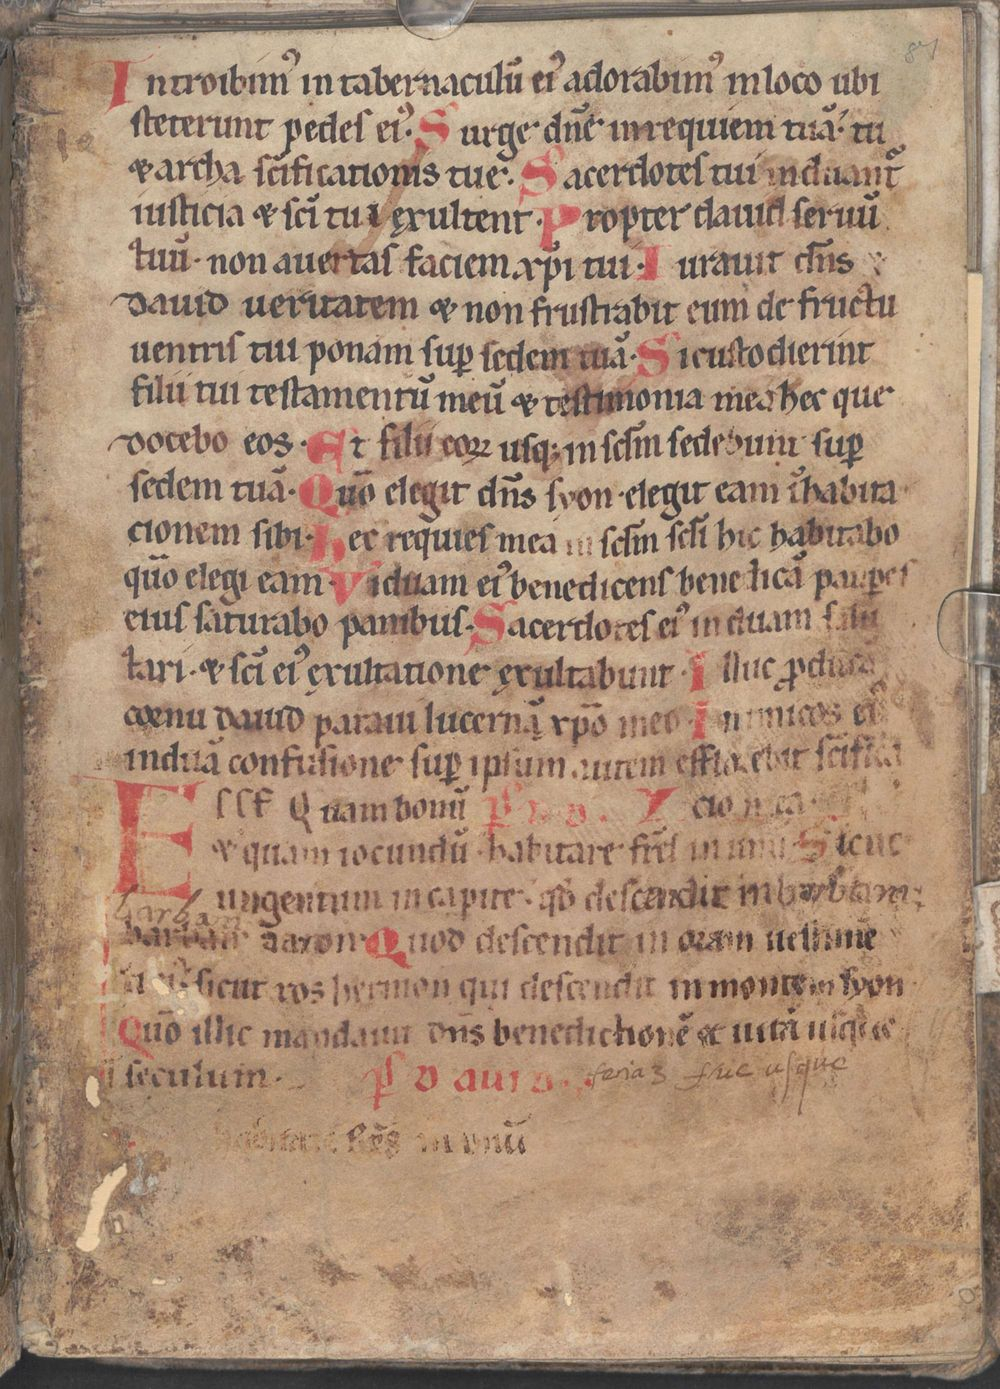 87
Introibim᷒ in tabernaculū ei᷒ adorabim᷒ in loco ubi
steterunt pedes ei᷒· Surge dn̄e in requiem tuā· tu
& archa sc̄ificationis tuę· Sacerdotes tui induant᷑
iusticia & sc̄i tui exultent· Propter dauid seruū
tuū· non auertas faciem xp̄i tui· Iurauit dn̄s
dauid ueritatem & non frustrabit eum de fructu
uentris tui ponam sup̄ sedem tuā· Si custodierint
filii tui testamentū meū & testimonia mea hec que
docebo eos· Et filii eoꝝ usq; in sc̄lm sedebunt sup̄
sedem tuā· Quō elegit dn̄s syon· elegit eam ī habita
cionem sibi· Hec requies mea in sc̄lm sc̄li hic habitabo
qūo elegi eam· Viduam ei᷒ benedicens benedicā pauperes
eius saturabo panibus· Sacerdotes ei᷒ induam salu
tari· & sc̄i ei᷒ exultatione exultabunt· Illuc ꝓducā
cornu dauid paraui lucernā xp̄o meo· Inimicos ei᷒
induā confusione sup̄ ipsum autem efflorebit sc̄ificā
Quam bonū cio mea·
E & quam iocundū habitare fr̄es in unū Sicut
ungentum in capite· qd̄ descendit in barbam
barbam
barbam aaron· Quod descendit in oram uestimē
ti ei᷒ sicut ros hermon qui descendit in montem syon
Quō illic mandauit dn̄s benedictionē & uitā usque
i seculum· P̄ dauid· feria 3 usque
habitare in unū